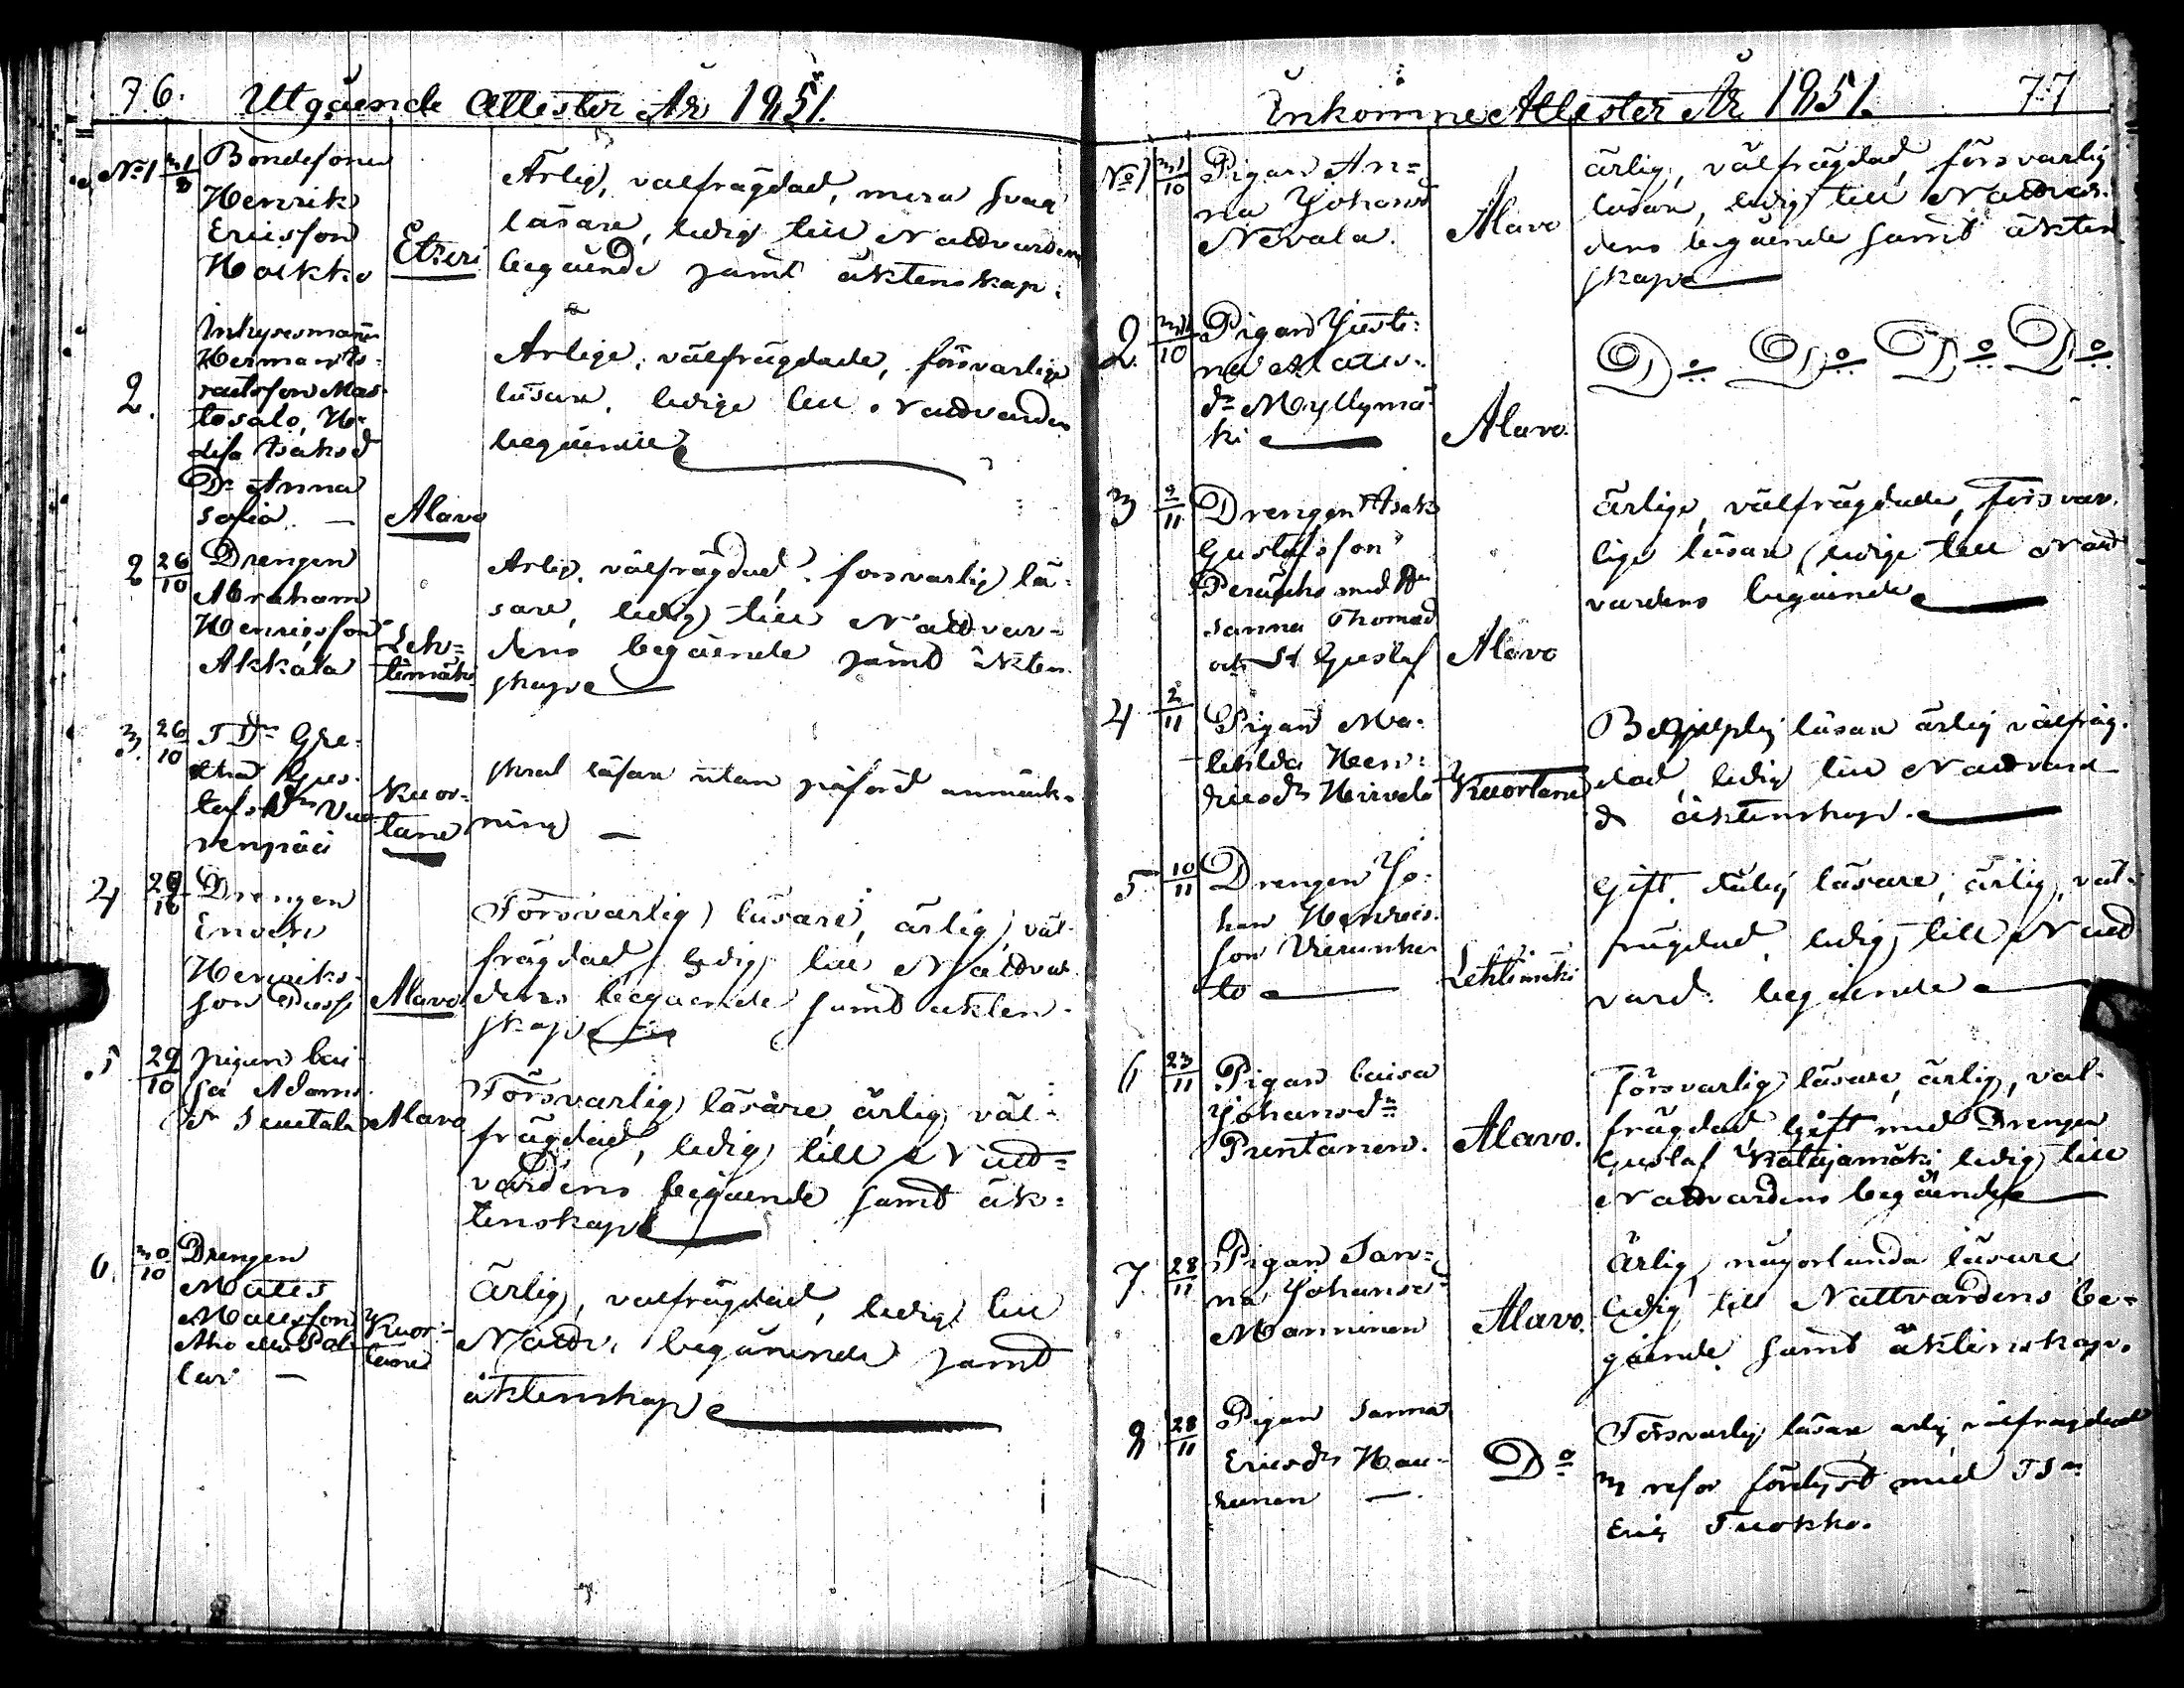 76. Utgående Attester År 1851.
No 1 31/8 Bondesonen
Henrik
Ericsson
Hoikko
Etseri
Ärlig, välfrägdad, mera svag
läsare, ledig till Nattvardens
begående samt äktenskap.
2. Inhysesmannen
Herman Is-
raelsson Mas-
tosalo, H
Lisa Isaksd
Dr Anna
Sofia. —
Alavo
Ärlige, välfrägdade, försvarlige
läsare, ledige till Nattvarden
begående
2 26/10 Drengen
Abraham
Henricsson
Akkala
Leh-
timäki
Ärlig, välfrägdad, försvarlig lä-
sare, ledig till Nattvar-
dens begående samt äkten-
skap
3. 26/10 TDr Gre-
tha Gus-
tafsdr
renpää
Kuor-
tane
läsare utan påförd anmärk-
ning —
4 Drengen
Enoch
Henriks-
son
Alavo
Försvarlig läsare, ärlig, väl-
frägdad, ledig till Nattvar-
dens begående samt äkten-
skap
5 29/10 pigan Cai-
sa Adams
dr
Alavo
Försvarlig läsare, ärlig, väl-
frägdad, ledig till Natt-
vardens begående samt äk-
tenskap
6. 30/10 Drengen
Matts
Mattsson
Aho
lari —
Kuor-
tane
Ärlig, välfrägdad, ledig till
Nattv. begående samt
äktenskap
Inkomne Attester År 1851. 77
No 1 31/10 Pigan An-
na Johansd
Nevala.
Alavo
ärlig, välfrägdad, försvarlig
läsare, ledig till Nattvar-
dens begående samt äkten
skap
2. 31/10 Pigan Justi-
na Matts-
dr Myllymä-
ki
Alavo.
Do Do Do Do
3 2/11 Drengen Isak
Gustafsson
med
Sanna Thomasd
och Gustaf
Alavo
ärlige, välfrägdade, försvar-
lige läsare, ledige till Natt
vardens begående
4 2/11 Pigan Ma-
thilda Hen-
dricsdr Hirvelä
Kuortane
läsare ärlig välfräg-
dad, ledig till Nattvard
& äktenskap.
5. 10/11 Drengen Jo-
han Henrics-
son Vierunke-
to
Lehtimäki
Gift, läsare, ärlig, väl-
frägdad, ledig till Natt
vard: begående
6 23/11 Pigan Caisa
Johansdr
Puntanen.
Alavo.
Försvarlig läsare, ärlig, väl-
frägdad, Gift med Drengen
Gustaf Katajamäki ledig till
Nattvardens begående
7. 28/11 Pigan San-
na Johansd
Manninen
Alavo.
Ärlig, någorlunda läsare
ledig till Nattvardens be-
gående samt äktenskap.
8 28/11 Pigan Sanna
Ericsdr Hau-
tunen —.
Do
Försvarlig läsare ärlig välfrägdad
3 resor förlyst med
Eric Tuokko.